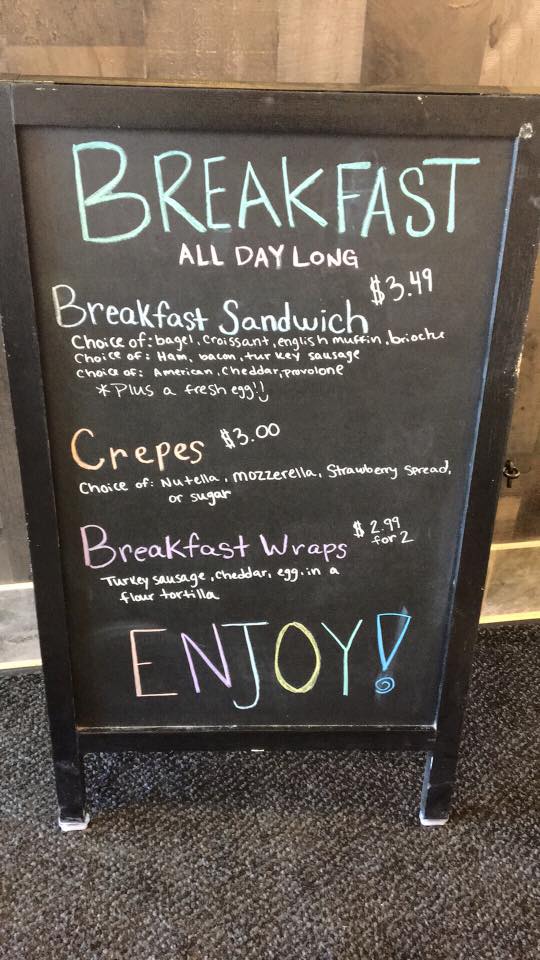 BREAKFAST
ALL DAY LONG
Breakfast Sandwich $3.49
Choice of: bagel, croissant, english muffin, brioche
Choice of: Ham, bacon, turkey sausage
Choice of: American, cheddar, provolone
*Plus a fresh egg!!
Crepes $3.00
Choice of: Nutella, mozzerella, Strawberry Spread,
or sugar
Breakfast Wraps $2.99
for 2
Turkey sausage, cheddar, egg, in a
flour tortilla
ENJOY!